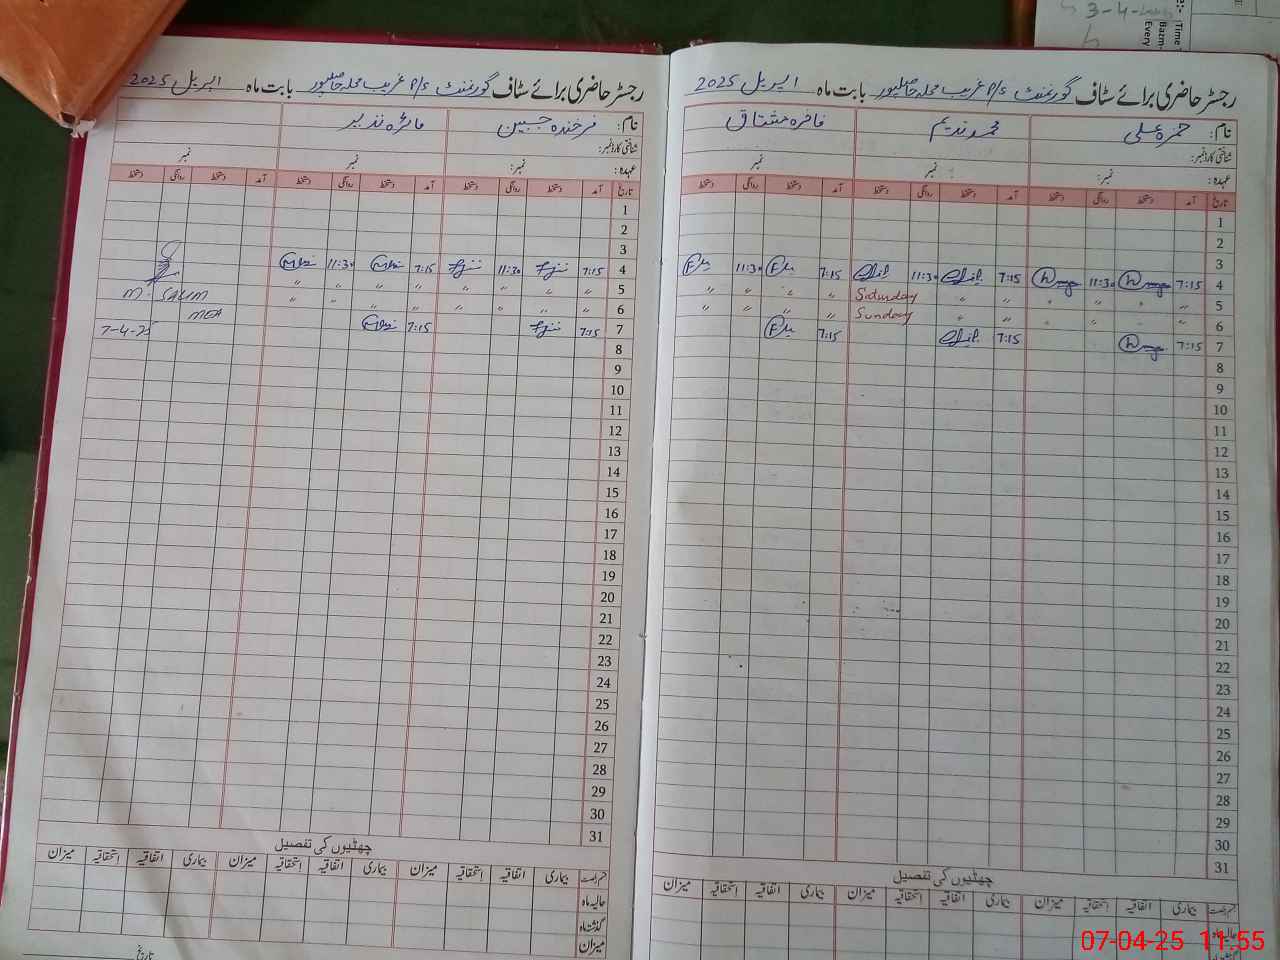 3-4-
Time
Bazm-
Every
رجسٹر حاضری برائے سٹاف گورنمنٹ P/S غریب محلہ بابت ماہ اپریل 2025
نام: حمزہ علی محمد ندیم فاخرہ مشتاق
شناختی کارڈ نمبر:
عہدہ: نمبر: نمبر نمبر
تاریخ آمد دستخط روانگی دستخط آمد دستخط روانگی دستخط آمد دستخط روانگی دستخط
1
2
3
4 7:15 11:30 7:15 11:30 7:15 11:30
5 〃 〃 〃 〃 Saturday 〃 〃 〃 〃
6 〃 〃 〃 〃 Sunday 〃 〃 〃 〃
7 7:15 7:15 7:15
8
9
10
11
12
13
14
15
16
17
18
19
20
21
22
23
24
25
26
27
28
29
30
31
چھٹیوں کی تفصیل
قسم رخصت بیماری اتفاقیہ استحقاقیہ میزان بیماری اتفاقیہ استحقاقیہ میزان بیماری اتفاقیہ استحقاقیہ میزان
حالیہ ماہ
رجسٹر حاضری برائے سٹاف گورنمنٹ P/S غریب محلہ بابت ماہ اپریل 2025
نام: فرخندہ جبین مائرہ نذیر
شناختی کارڈ نمبر:
عہدہ: نمبر: نمبر نمبر
تاریخ آمد دستخط روانگی دستخط آمد دستخط روانگی دستخط آمد دستخط روانگی دستخط
1
2
3
4 7:15 11:30 7:15 11:30
5 〃 〃 〃 〃 〃 〃 〃 〃 M. SALIM
6 〃 〃 〃 〃 〃 〃 〃 〃 MEA
7 7:15 7:15 7-4-25
8
9
10
11
12
13
14
15
16
17
18
19
20
21
22
23
24
25
26
27
28
29
30
31
چھٹیوں کی تفصیل
قسم رخصت بیماری اتفاقیہ استحقاقیہ میزان بیماری اتفاقیہ استحقاقیہ میزان بیماری اتفاقیہ استحقاقیہ میزان
حالیہ ماہ
گذشتہ ماہ
میزان
تاریخ
07-04-25 11:55